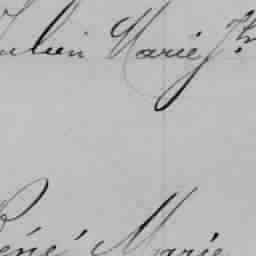 Julien Marie Jh
René Marie